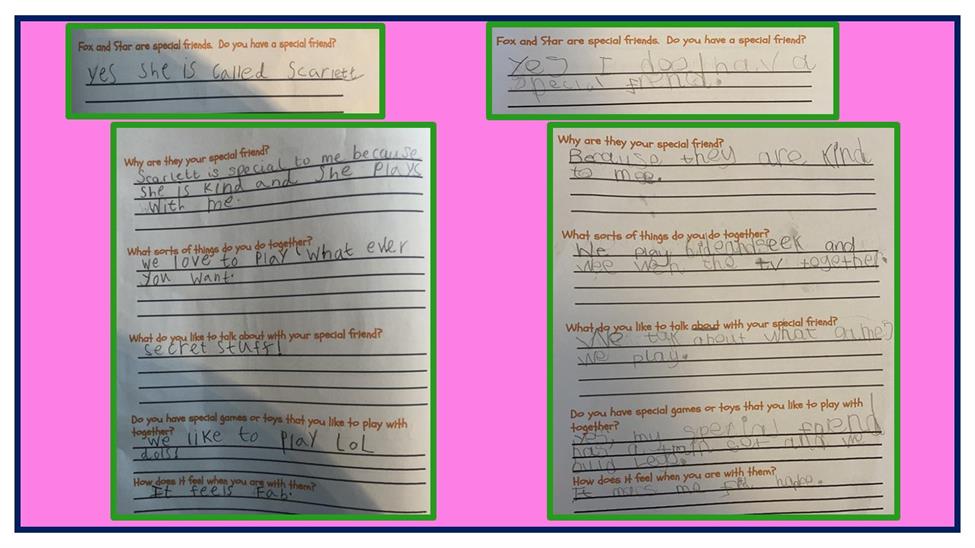 Fox and Star are special friends. Do you have a special friend?
yes she is called Scarlett
Why are they your special friend?
Scarlett is special to me because
she is kind and she plays
with me.
What sorts of things do you do together?
we love to play what ever
you want.
What do you like to talk about with your special friend?
secret stuff!
Do you have special games or toys that you like to play with
together?
we like to play LoL
dolls!
How does it feel when you are with them?
It feels Fab.
Fox and Star are special friends. Do you have a special friend?
Yes I do hav a
special friend.
Why are they your special friend?
Because they are kind
to me.
What sorts of things do you do together?
We play hideandseek and
the tv together.
What do you like to talk about with your special friend?
We talk about what games
we play.
Do you have special games or toys that you like to play with
together?
yes, my special friend
has a train set and we
build Lego.
How does it feel when you are with them?
It me